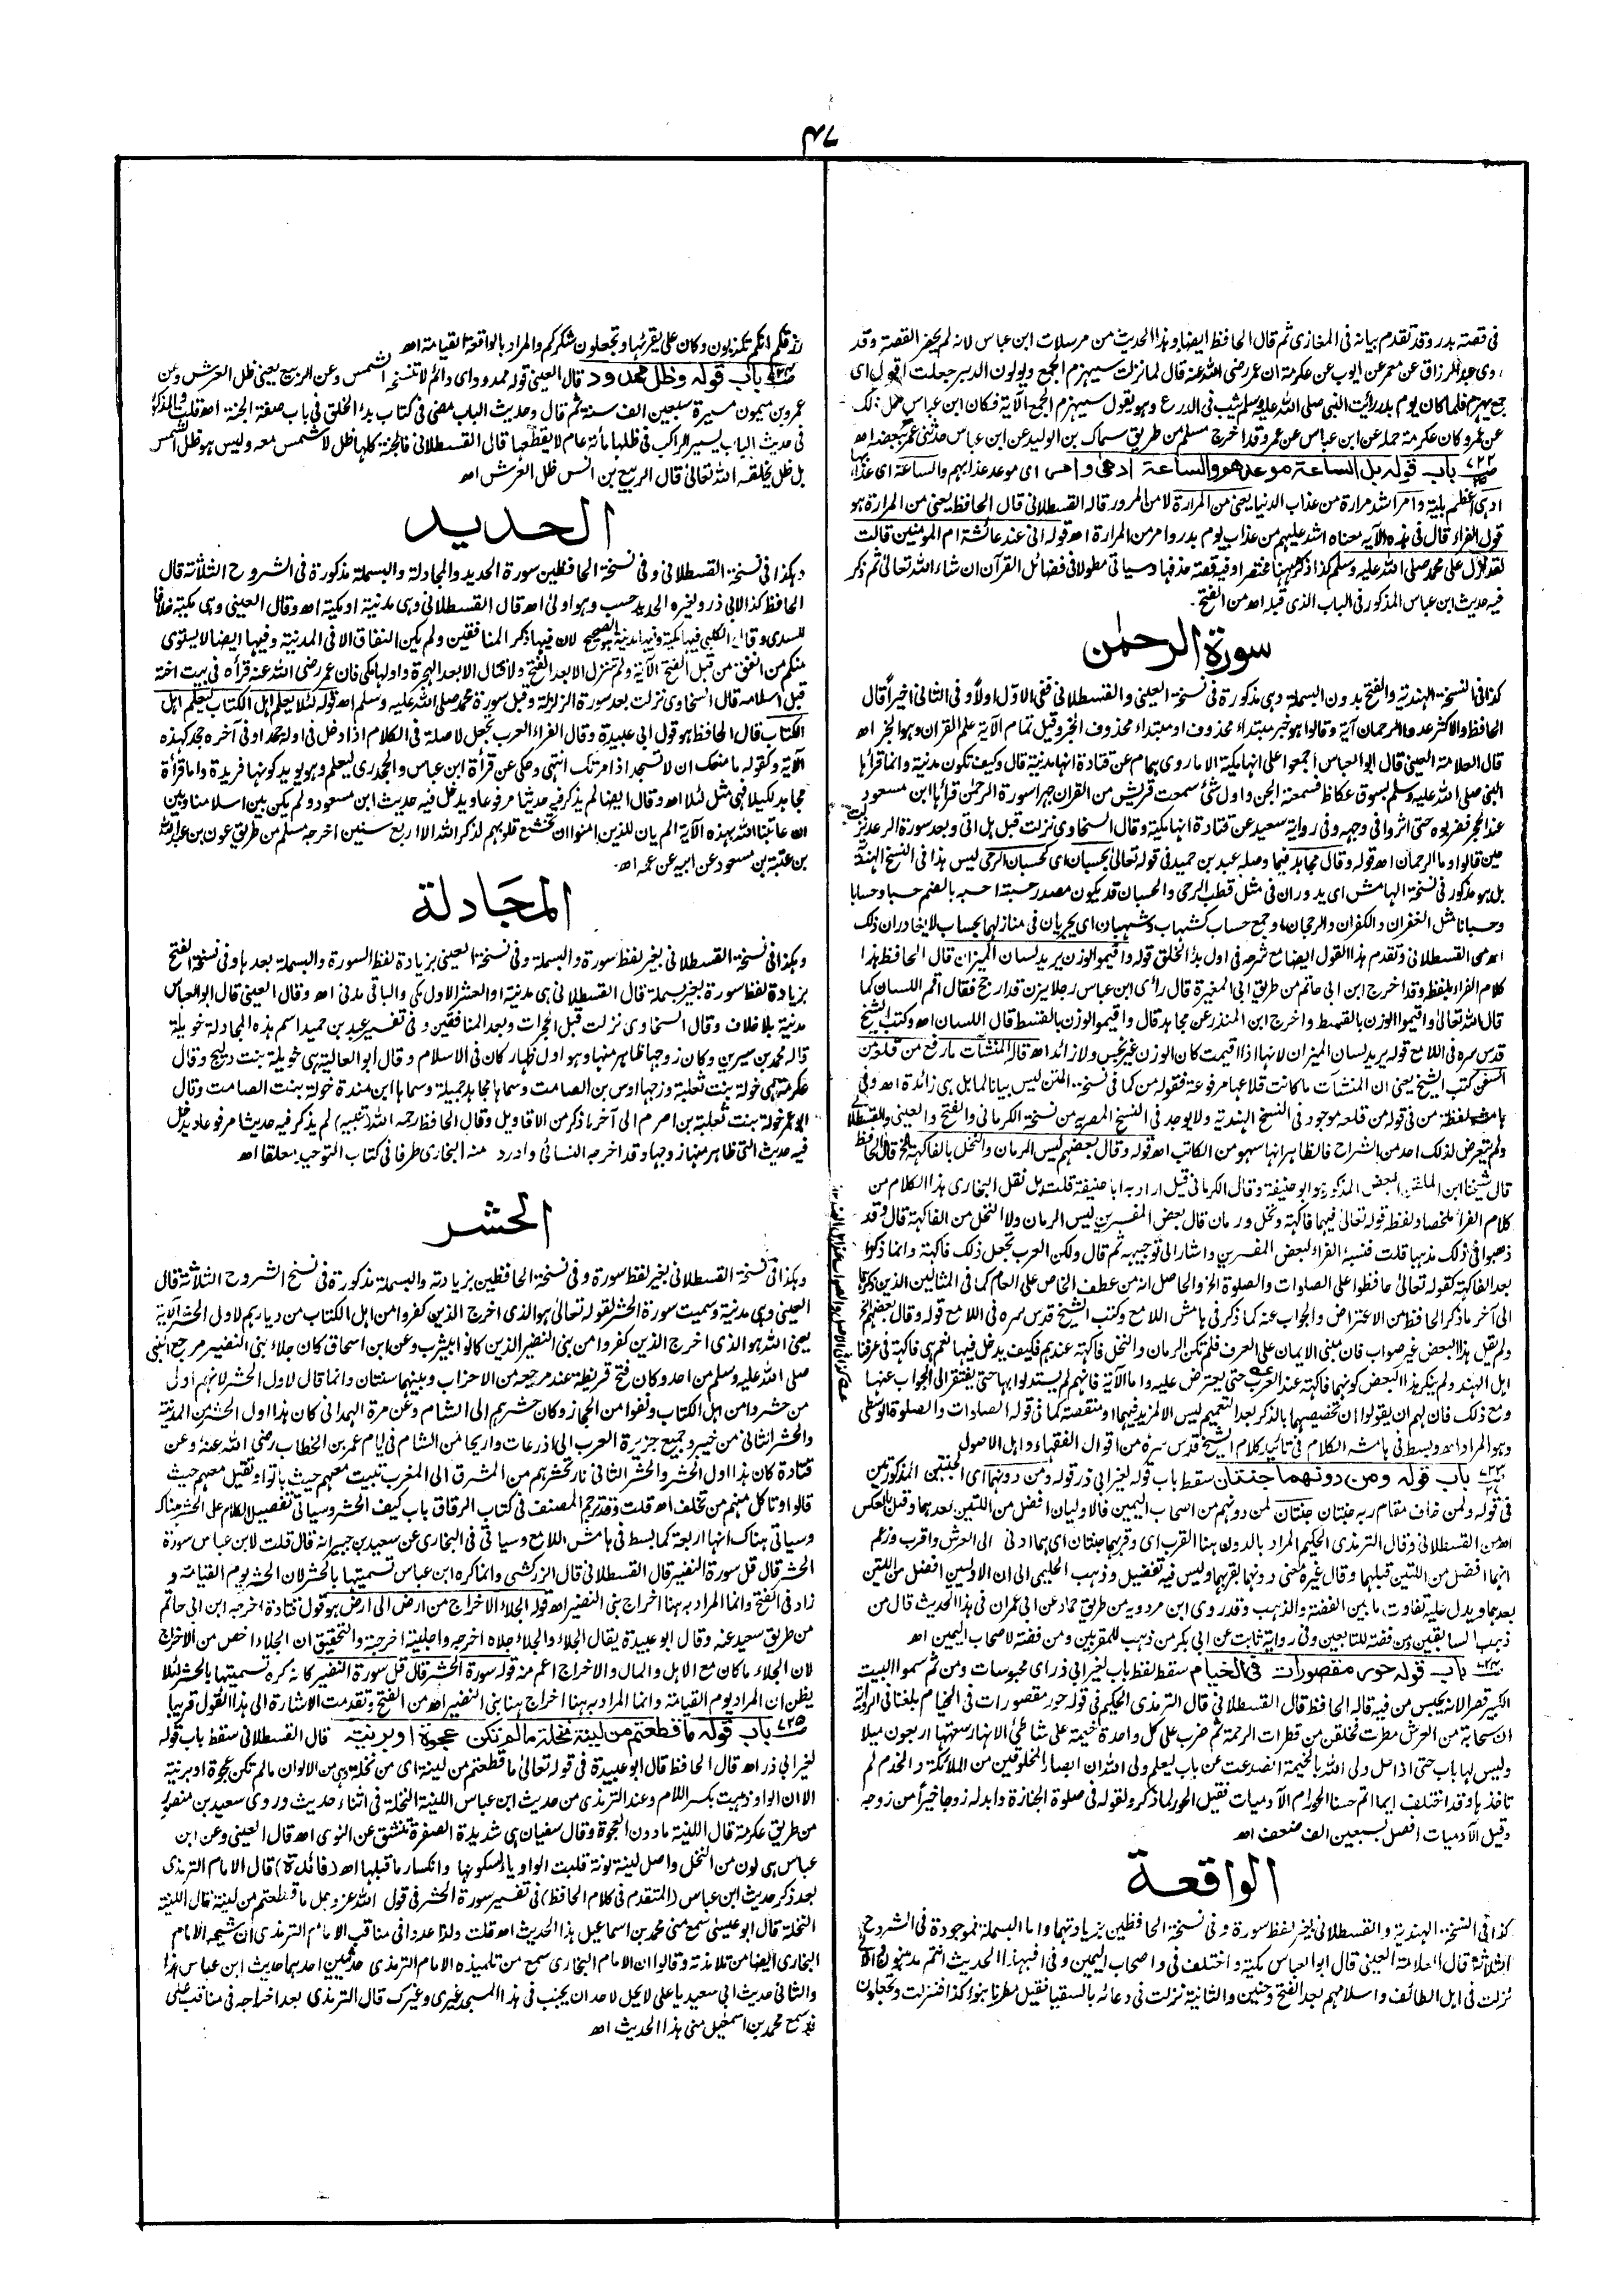 ٤٧
فى قصة بدر وقد تقدم بيانه فى المغازى ثم قال الحافظ ايضا وهذا الحديث من مرسلات ابن عباس لانه لم يحضر القصة وقد
روى عبد الرزاق عن معمر عن ايوب عن عكرمة ان عمر رضى الله عنه قال لما نزلت سيهزم الجمع ويولون الدبر جعلت اقول اى
جمع يهزم فلما كان يوم بدر رأيت النبى صلى الله عليه وسلم يثب فى الدرع وهو يقول سيهزم الجمع الآية فكان ابن عباس حمل ذلك
عن عمر وكان عكرمة حمله عن ابن عباس عن عمر وقد اخرج مسلم من طريق سماك بن الوليد عن ابن عباس حدثنى عمر ببعضه اه
باب قوله بل الساعة موعدهم والساعة ادهى وامر اى موعد عذابهم والساعة اى عذابها
ادهى اعظم بلية وامر اشد مرارة من عذاب الدنيا يعنى من المرارة لا من المرور قاله القسطلانى قال الحافظ يعنى من المرارة هو
قول الفراء قال فى هذه الآيه معناه اشد عليهم من عذاب يوم بدر وامر من المرارة اه قوله انى عند عائشة ام المؤمنين قالت
لقد نزل على محمد صلى الله عليه وسلم كذا ذكره ههنا مختصرا وفيه قصة حذفها وسيأتى مطولا فى فضائل القرآن ان شاء الله تعالى ثم ذكر
فيه حديث ابن عباس المذكور فى الباب الذى قبله اه من الفتح ـ
سورة الرحمٰن
كذا فى النسخة الهندية والفتح بدون البسملة وهى مذكورة فى نسخة العينى والقسطلانى ففى الاول اولاً وفى الثانى اخيراً قال
الحافظ والاكثر عدوا الرحمان آية وقالوا هو خبر مبتداء محذوف او مبتداء محذوف الخبر وقيل تمام الآية علم القران وهو الخبر اه
قال العلامة العينى قال ابو العباس اجمعوا على انها مكية الا ما روى همام عن قتادة انها مدنية قال وكيف تكون مدنية وانما قرأها
النبى صلى الله عليه وسلم بسوق عكاظ فسمعته الجن واول شئ سمعت قريش من القران جهرا سورة الرحمٰن قرأها ابن مسعود
عند الحجر فضربوه حتى اثروا فى وجهه وفى رواية سعيد عن قتادة انها مكية وقال السخاوى نزلت قبل هل اتى وبعد سورة الرعد نزلت
حين قالوا وما الرحمان اه قوله وقال مجاهد فيما وصله عبد بن حميد فى قوله تعالى بحسبان اى كحسبان الرحى ليس هذا فى النسخ الهندية
بل هو مذكور فى نسخة الهامش اى يدوران فى مثل قطب الرحى والحسبان قد يكون مصدر حسبته احسبه بالضم حسبا وحسابا
وحسبانا مثل الغفران والكفران والرجحان او جمع حساب كشهاب وشهبان اى يجريان فى منازلهما بحساب لا يغادران ذلك
اه من القسطلانى وتقدم هذا القول ايضا مع شرحه فى اول بدأ الخلق قوله واقيموا الوزن يريد لسان الميزان قال الحافظ هذا
كلام الفراء بلفظه وقد اخرج ابن ابى حاتم من طريق ابى المغيرة قال رأى ابن عباس رجلا يزن قد ارجح فقال اقم اللسان كما
قال الله تعالى واقيموا الوزن بالقسط واخرج ابن المنذر عن مجاهد قال واقيموا الوزن بالقسط قال اللسان اه وكتب الشيخ
قدس سره فى اللامع قوله يريد لسان الميزان لانها اذا اقيمت كان الوزن غير بخس ولا زائد اه قال المنشآت ما رفع من قلعه من
السفن كتب الشيخ يعنى ان المنشآت ما كانت قلاعها مرفوعة فقوله من كما فى نسخة المتن ليس بيانا لما بل هى زائدة اه وفى
هامشه لفظة من فى قوله من قلعه موجود فى النسخ الهندية ولا يوجد فى النسخ المصرية من نسخة الكرمانى والفتح والعينى والقسطلانى
ولم يتعرض لذلك احد من الشراح فالظاهر انها سهو من الكاتب اه قوله وقال بعضهم ليس الرمان والنخل بالفاكهة الخ قال الحافظ
قال شيخنا ابن الملقن البعض المذكور هو ابو حنيفة وقال الكرمانى قيل اراد به ابا حنيفة قلت بل نقل البخارى هذا الكلام من
كلام الفراء ملخصا ولفظه قوله تعالى فيهما فاكهة ونخل ورمان قال بعض المفسرين ليس الرمان ولا النخل من الفاكهة قال وقد
ذهبوا فى ذلك مذهبا قلت فنسبه الفراء لبعض المفسرين واشار الى توجيهه ثم قال ولكن العرب تجعل ذلك فاكهة وانما ذكرا
بعد الفاكهة كقوله تعالى حافظوا على الصلوات والصلوة الخ والحاصل انه من عطف الخاص على العام كما فى المثالين الذين ذكرهما
الى آخر ما ذكر الحافظ من الاعتراض والجواب عنه كما ذكر فى هامش اللامع وكتب الشيخ قدس سره فى اللامع قوله وقال بعضهم الخ
ولم يقل هذا البعض غير صواب فان مبنى الايمان على العرف فلم تكن الرمان والنخل فاكهة عندهم فكيف يدخل فيها نعم هى فاكهة فى عرفنا
اهل الهند ولم ينكر هذا البعض كونهما فاكهة عند العرب حتى يعترض عليه واما الآية فانهم لم يستدلوا بها حتى يفتقر الى الجواب عنها
ومع ذلك فان لهم ان يقولوا ان تخصيصهما بالذكر بعد التعميم ليس الا لمزيد فيهما او منقصة كما فى قوله الصلوات والصلوة الوسطى
وهو المراد اه وبسط فى هامشه الكلام فى تائيد كلام الشيخ قدس سره من اقوال الفقهاء واهل الاصول
باب قوله ومن دونهما جنتان سقط باب قوله لغير ابى ذر قوله ومن دونهما اى الجنتين المذكورتين
فى قوله ولمن خاف مقام ربه جنتان جنتان لمن دونهم من اصحاب اليمين فالاوليان افضل من اللتين بعدهما وقيل بالعكس
اه من القسطلانى وقال الترمذى الحكيم المراد بالدون هنا القرب اى وقربهما جنتان اى هما ادنى الى العرش واقرب وزعم
انهما افضل من اللتين قبلهما وقال غيره معنى دونهما بقربهما وليس فيه تفضيل وذهب الحليمى الى ان الاوليين افضل من اللتين
بعدهما ويدل عليه تفاوت ما بين الفضة والذهب وقد روى ابن مردويه من طريق حماد عن ابى عمران فى هذا الحديث قال من
ذهب للسابقين ومن فضة للتابعين وفى رواية ثابت عن ابى بكر من ذهب للمقربين ومن فضة لاصحاب اليمين اه
باب قوله حور مقصورات فى الخيام سقط لفظ باب لغير ابى ذر اى محبوسات ومن ثم سموا البيت
الكبير قصرا لانه يحبس من فيه قاله الحافظ قال القسطلانى قال الترمذى الحكيم فى قوله حور مقصورات فى الخيام بلغنا فى الرواية
ان سحابة من العرش مطرت فخلقن من قطرات الرحمة ثم ضرب على كل واحدة خيمة على شاطئ الانهار سعتها اربعون ميلا
وليس لها باب حتى اذا حل ولى الله بالخيمة انصدعت عن باب ليعلم ولى الله ان ابصار المخلوقين من الملائكة والخدم لم
تاخذها وقد اختلف ايهما اتم حسنا الحور ام الآدميات فقيل الحور لما ذكر ولقوله فى صلوة الجنازة وابدله زوجا خيراً من زوجه
وقيل الآدميات افضل بسبعين الف ضعف اه
الواقعة
كذا فى النسخة الهندية والقسطلانى بغير لفظ سورة وفى نسخة الحافظين بزيادتها واما البسملة فموجودة فى الشروح
الثلاثة قال العلامة العينى قال ابو العباس مكية واختلف فى واصحاب اليمين وفى افبهذا الحديث انتم مدهنون
نزلت فى اهل الطائف واسلامهم بعد الفتح وحنين والثانية نزلت فى دعائه بالسقيا فقيل مطرنا بنوء كذا فنزلت وتجعلون
رزقكم انكم تكذبون وكان على يقرئها وتجعلون شكركم والمراد بالواقعة القيامة اه
باب قوله وظل ممدود قال العينى قوله ممدود اى دائم لا تنسخه الشمس وعن الربيع يعنى ظل العرش وعن
عمرو بن ميمون مسيرة سبعين الف سنة ثم قال وحديث الباب مضى فى كتاب بدء الخلق فى باب صفة الجنة اه قلت والمذكور
فى حديث الباب يسير الراكب فى ظلها مأة عام لا يقطعها قال القسطلانى فالجنة كلها ظل لا شمس معه وليس هو ظل الشمس
بل ظل يخلقه الله تعالى قال الربيع بن انس ظل العرش اه
الحديد
وهكذا فى نسخة القسطلانى وفى نسخة الحافظين سورة الحديد والمجادلة والبسملة مذكورة فى الشروح الثلاثة قال
الحافظ كذا لابى ذر ولغيره الحديد حسب وهو اولى اه قال القسطلانى وهى مدنية او مكية اه وقال العينى وهى مكية خلافا
للسدى وقال الكلبى فيها مكية وفيها مدنية الصحيح لان فيها ذكر المنافقين ولم يكن النفاق الا فى المدينة وفيها ايضا لا يستوى
منكم من انفق من قبل الفتح الآية ولم تنزل الا بعد الفتح ولا قتال الا بعد الهجرة واولها مكى فان عمر رضى الله عنه قرأه فى بيت اخته
قبل اسلامه قال السخاوى نزلت بعد سورة الزلزلة وقبل سورة محمد صلى الله عليه وسلم اه قوله لئلا يعلم اهل الكتاب ليعلم اهل
الكتاب قال الحافظ هو قول ابى عبيدة وقال الفراء العرب تجعل لا صلة فى الكلام اذا دخل فى اوله جحد او فى آخره جحد كهذه
الآية وكقوله ما منعك ان لا تسجد اذ امرتك انتهى وحكى عن قرأة ابن عباس والجحدرى ليعلم وهو يؤيد كونها مزيدة واما قرأة
مجاهد لكيلا فهى مثل لئلا اه وقال ايضا لم يذكر فيه حديثا مرفوعا ويدخل فيه حديث ابن مسعود ولم يكن بين اسلامنا وبين
ان عاتبنا الله بهذه الآية الم يان للذين امنوا ان تخشع قلوبهم لذكر الله الا اربع سنين اخرجه مسلم من طريق عون بن عبد الله
بن عتبة بن مسعود عن ابيه عن عمه اه
المجَادلة
وهكذا فى نسخة القسطلانى بغير لفظ سورة والبسملة وفى نسخة العينى بزيادة لفظ السورة والبسملة بعدها وفى نسخة الفتح
بزيادة لفظ سورة بغير بسملة قال القسطلانى هى مدنية او العشر الاول مكى والباقى مدنى اه وقال العينى قال ابو العباس
مدنية بلا خلاف وقال السخاوى نزلت قبل الحجرات وبعد المنافقين وفى تفسير عبد بن حميد اسم هذه المجادلة خويلة
قاله محمد بن سيرين وكان زوجها ظاهر منها وهو اول ظهار كان فى الاسلام وقال ابو العالية هى خويلة بنت دليج وقال
عكرمة هى خولة بنت ثعلبة وزوجها اوس بن الصامت وسماها مجاهد جميلة وسماها ابن مندة خولة بنت الصامت وقال
ابو عمر خولة بنت ثعلبة بن اصرم الى آخر ما ذكر من الاقاويل وقال الحافظ رحمه الله (تنبيه) لم يذكر فيه حديثا مرفوعا ويدخل
فيه حديث التى ظاهر منها زوجها وقد اخرجه النسائى واورد منه البخارى طرفا فى كتاب التوحيد معلقا اه
الحشر
وهكذا فى نسخة القسطلانى بغير لفظ سورة وفى نسخة الحافظين بزيادته والبسملة مذكورة فى نسخ الشروح الثلاثة قال
العينى وهى مدنية وسميت سورة الحشر لقوله تعالى هو الذى اخرج الذين كفروا من اهل الكتاب من ديارهم لاول الحشر الآية
يعنى الله هو الذى اخرج الذين كفروا من بنى النضير الذين كانوا بيثرب وعن ابن اسحاق كان جلاء بنى النضير مرجع النبى
صلى الله عليه وسلم من احد وكان فتح قريظة عند مرجعه من الاحزاب وبينهما سنتان وانما قال لاول الحشر لانهم اول
من حشروا من اهل الكتاب ونفوا من الحجاز وكان حشرهم الى الشام وعن مرة الهمدانى كان هذا اول الحشر من المدينة
والحشر الثانى من خيبر وجميع جزيرة العرب الى اذرعات واريحا من الشام فى ايام عمر بن الخطاب رضى الله عنه وعن
قتادة كان هذا اول الحشر والحشر الثانى نار تحشرهم من المشرق الى المغرب تبيت معهم حيث باتوا وتقيل معهم حيث
قالوا وتاكل منهم من تخلف اه قلت وقد ترجم المصنف فى كتاب الرقاق باب كيف الحشر وسيأتى تفصيل الكلام على الحشر هناك
وسيأتى هناك انها اربعة كما بسط فى هامش اللامع وسيأتى فى البخارى عن سعيد بن جبير انه قال قلت لابن عباس سورة
الحشر قال قل سورة النضير قال القسطلانى قال الزركشى وانما كره ابن عباس تسميتها بالحشر لان الحشر يوم القيامة و
زاد فى الفتح وانما المراد به هنا اخراج بنى النضير اه قوله الجلاء الاخراج من ارض الى ارض هو قول قتادة اخرجه ابن ابى حاتم
من طريق سعيد عنه وقال ابو عبيدة يقال الجلاء والاجلاء جلاه اخرجه واجليته اخرجته والتحقيق ان الجلاء اخص من الاخراج
لان الجلاء ما كان مع الاهل والمال والاخراج اعم منه قوله سورة الحشر قال قل سورة النضير كانه كره تسميتها بالحشر لئلا
يظن ان المراد يوم القيامة وانما المراد به هنا اخراج هنا بنى النضير اه من الفتح وتقدمت الاشارة الى هذا القول قريبا
٧٢٥ باب قوله ما قطعتم من لينة نخلة ما لم تكن عجوة او برنية قال القسطلانى سقط باب قوله
لغير ابى ذر اه قال الحافظ قال ابو عبيدة فى قوله تعالى ما قطعتم من لينة اى من نخلة وهى من الالوان ما لم تكن عجوة او برنية
الا ان الواو ذهبت بكسر اللام وعند الترمذى من حديث ابن عباس اللينة النخلة فى اثناء حديث وروى سعيد بن منصور
من طريق عكرمة قال اللينة ما دون العجوة وقال سفيان هى شديدة الصفرة تنشق عن النوى اه قال العينى وعن ابن
عباس هى لون من النخل واصل لينة لونة قلبت الواو ياء لسكونها وانكسار ما قبلها اه (فائدة) قال الامام الترمذى
بعد ذكر حديث ابن عباس (المتقدم فى كلام الحافظ) فى تفسير سورة الحشر فى قول الله عز وجل ما قطعتم من لينة قال اللينة
النخلة قال ابو عيسىٰ سمع منى محمد بن اسماعيل هذا الحديث اه قلت ولذا عدوا فى مناقب الامام الترمذى ان شيخه الامام
البخارى ايضا من تلامذته وقالوا ان الامام البخارى سمع من تلميذه الامام الترمذى حديثين احدهما حديث ابن عباس هذا
والثانى حديث ابى سعيد يا على لا يحل لاحد ان يجنب فى هذا المسجد غيرى وغيرك قال الترمذى بعد اخراجه فى مناقب على
قد سمع محمد بن اسمعيل منى هذا الحديث اه